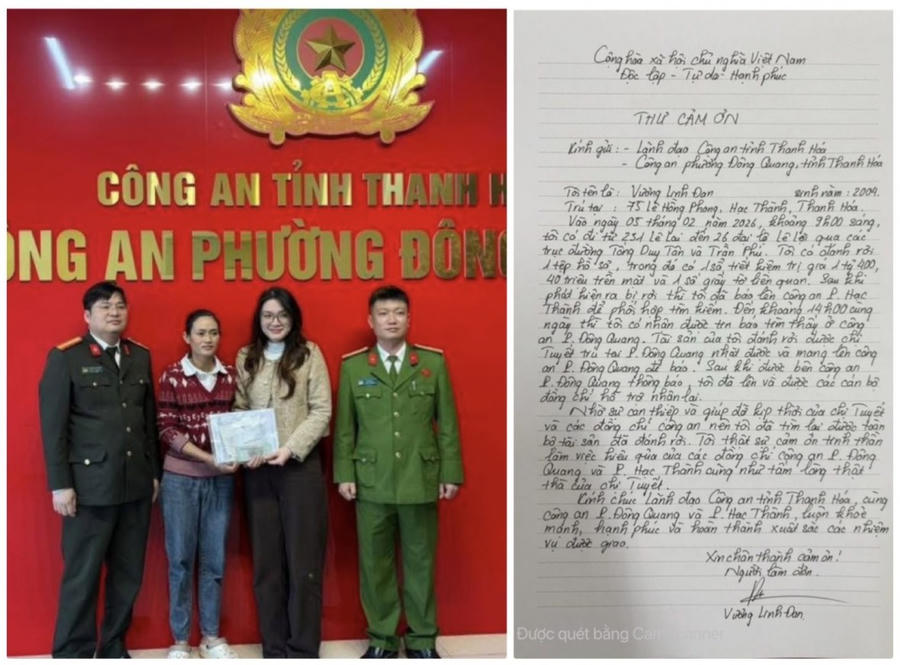 CÔNG AN TỈNH THANH H
ÔNG AN PHƯỜNG ĐÔNG
Cộng hòa xã hội chủ nghĩa Việt Nam
Độc lập - Tự do - Hạnh phúc
THƯ CẢM ƠN
Kính gửi: - Lãnh đạo Công an tỉnh Thanh Hóa
- Công an phường Đông Quang, tỉnh Thanh Hóa
Tôi tên là: Vương Linh Đan sinh năm: 2004.
Trú tại: 75 Lê Hồng Phong, Hạc Thành, Thanh Hóa.
Vào ngày 05 tháng 02 năm 2026, khoảng 9h00 sáng,
tôi có đi từ 231 Lê Lai đến 26 đại lộ Lê Lợi qua các
trục đường Tống Duy Tân và Trần Phú. Tôi có đánh rơi
1 tệp hồ sơ, trong đó có 1 sổ tiết kiệm trị giá 1 tỷ 400,
40 triệu tiền mặt và 1 số giấy tờ liên quan. Sau khi
phát hiện ra bị rơi thì tôi đã báo lên công an P. Hạc
Thành để phối hợp tìm kiếm. Đến khoảng 14h00 cùng
ngày thì tôi có nhận được tin báo tìm thấy ở công
an P. Đông Quang. Tài sản của tôi đánh rơi được chị
Tuyết trú tại P. Đông Quang nhặt được và mang lên công
an P. Đông Quang để báo. Sau khi được bên công an
P. Đông Quang thông báo, tôi đã lên và được các cán bộ
đồng chí hỗ trợ nhận lại.
Nhờ sự can thiệp và giúp đỡ kịp thời của chị Tuyết
và các đồng chí công an nên tôi đã tìm lại được toàn
bộ tài sản đã đánh rơi. Tôi thật sự cảm ơn tinh thần
làm việc hiệu quả của các đồng chí công an P. Đông
Quang và P. Hạc Thành cũng như tấm lòng thật
thà của chị Tuyết.
Kính chúc Lãnh đạo Công an tỉnh Thanh Hóa, cùng
công an P. Đông Quang và P. Hạc Thành, luôn khoẻ
mạnh, hạnh phúc và hoàn thành xuất sắc các nhiệm
vụ được giao.
Xin chân thành cảm ơn!
Người làm đơn.
Vương Linh Đan.
Được quét bằng CamScanner